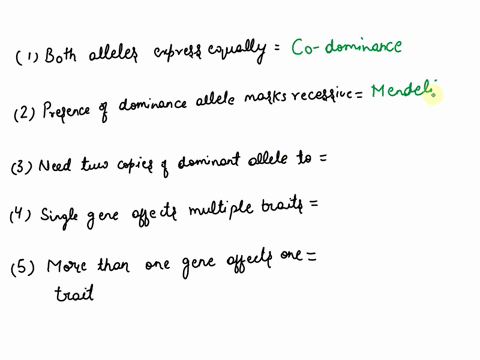 (1) Both alleles express equally = Co-dominance
(2) Presence of dominance allele masks recessive = Mendeli
(3) Need two copies of dominant allele to =
(4) Single gene affects multiple traits =
(5) More than one gene affects one =
trait